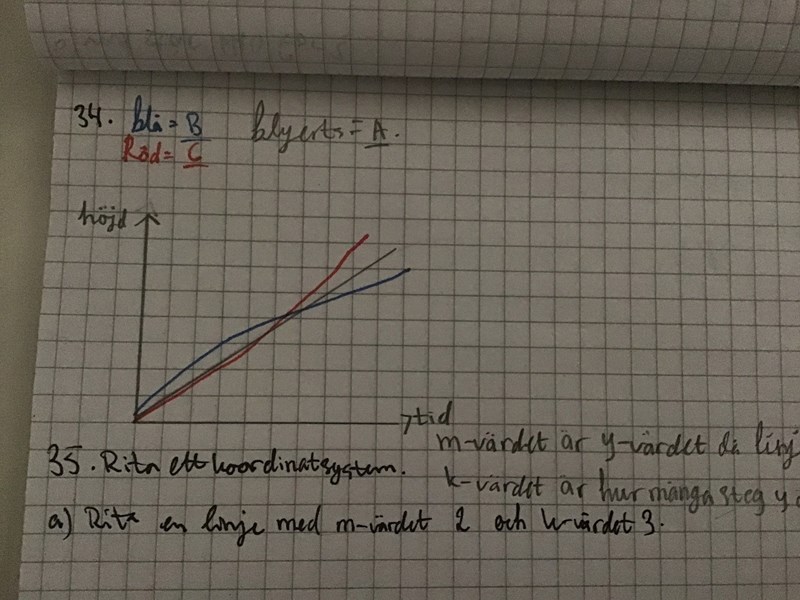 34. blå = B blyerts = A.
Röd = C
höjd
tid
m-värdet är y-värdet då linj
35. Rita ett koordinatsystem.
k-värdet är hur många steg y
a) Rita en linje med m-värdet 2 och k-värdet 3.